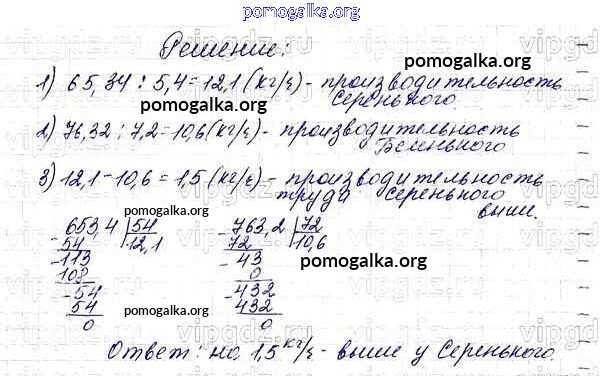 pomogalka.org
Решение:
pomogalka.org
1) 65,34 : 5,4 = 12,1 (кг/ч) - производительность
Серенького.
pomogalka.org
2) 76,32 : 7,2 = 10,6 (кг/ч) - производительность
Беленького
pomogalka.org
3) 12,1 - 10,6 = 1,5 (кг/ч) - производительность
труда Серенького
выше.
pomogalka.org
653,4 | 54
54 12,1
113
108
54
54
0
763,2 | 72
72 10,6
43
0
432
432
0
pomogalka.org
pomogalka.org
Ответ: на 1,5 кг/ч - выше у Серенького.